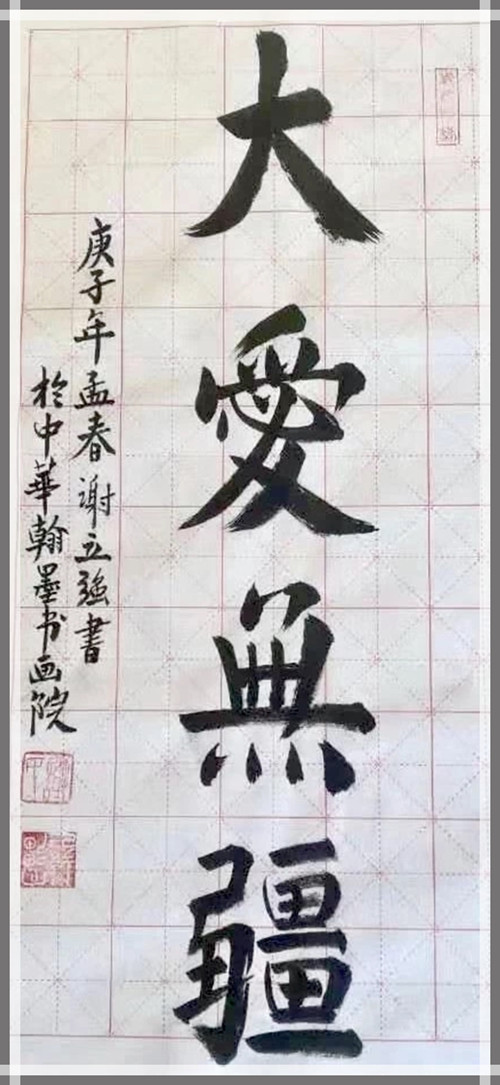 大愛無疆
庚子年孟春谢立强書
於中華翰墨书画院